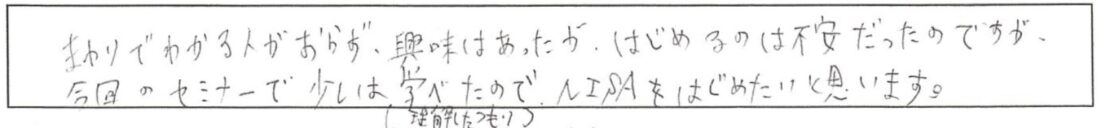 まわりでわかる人がおらず、興味はあったが、はじめるのは不安だったのですが、
今回のセミナーで少しは学べたので、NISAをはじめたいと思います。
(理解したつもり)